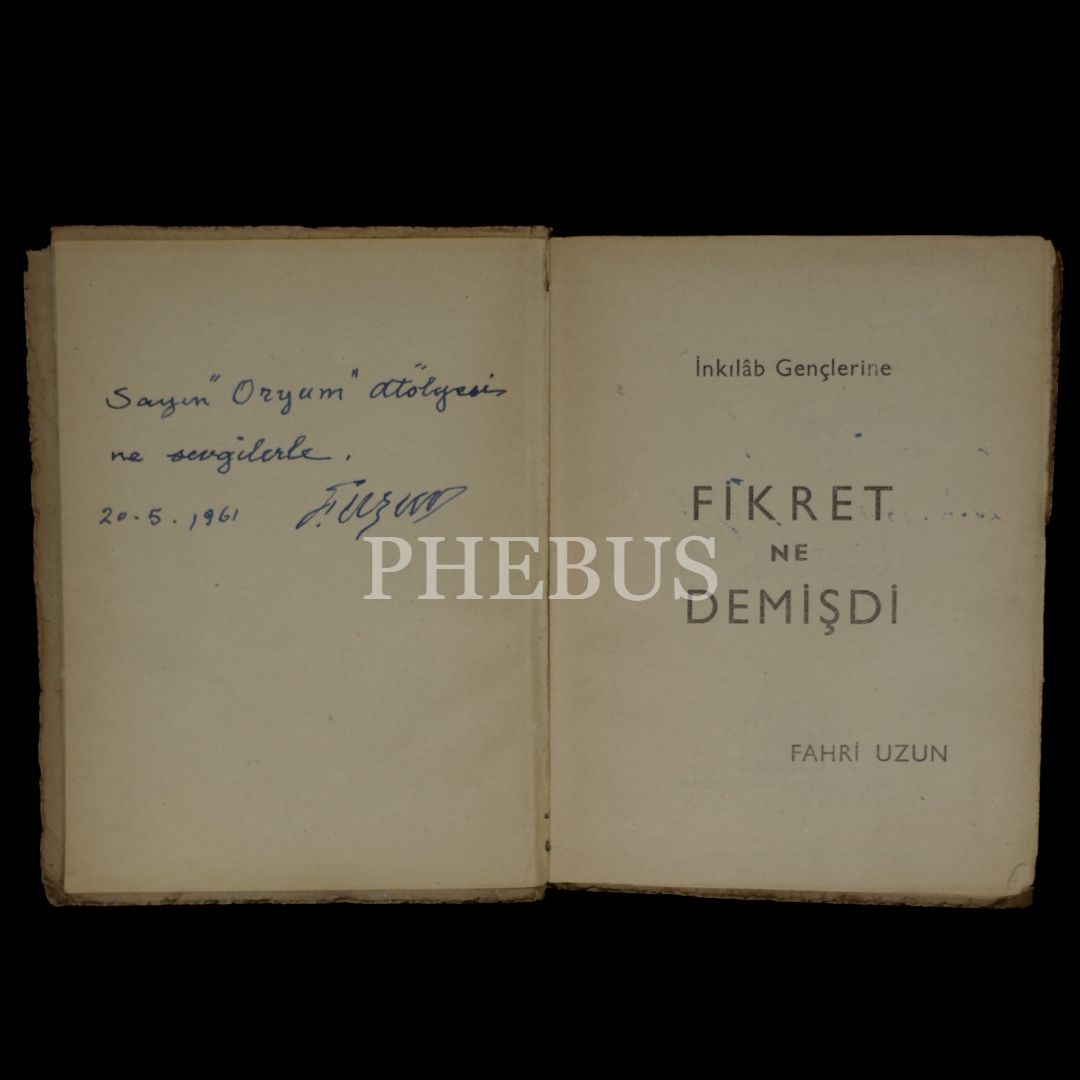 Sayın "Oryum" atölyesi
ne sevgilerle.
20.5.1961 F.Uzun
PHEBUS
İnkılâb Gençlerine
FİKRET
NE
DEMİŞDİ
FAHRİ UZUN